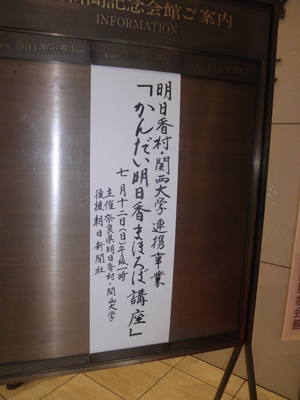 新聞記念会館ご案内
INFORMATION
朝日ギャラリー
明日香村・関西大学連携事業
「かんだい明日香まほろば講座」
七月十二日(日)午後一時
主催 奈良県明日香村・関西大学
後援 朝日新聞社